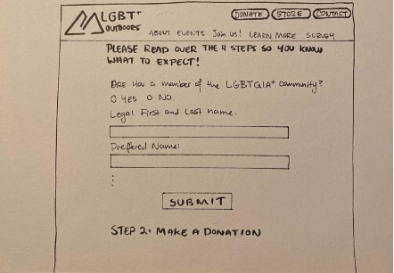 LGBT+
OUTDOORS
DONATE STORE CONTACT
ABOUT EVENTS Join us! LEARN MORE SURVEY
PLEASE READ OVER THE 4 STEPS SO YOU KNOW
WHAT TO EXPECT!
ARE YOU a member of the LGBTQIA+ community?
O Yes O NO
Legal First and Last name:
Preffered Name:
SUBMIT
STEP 2: MAKE A DONATION